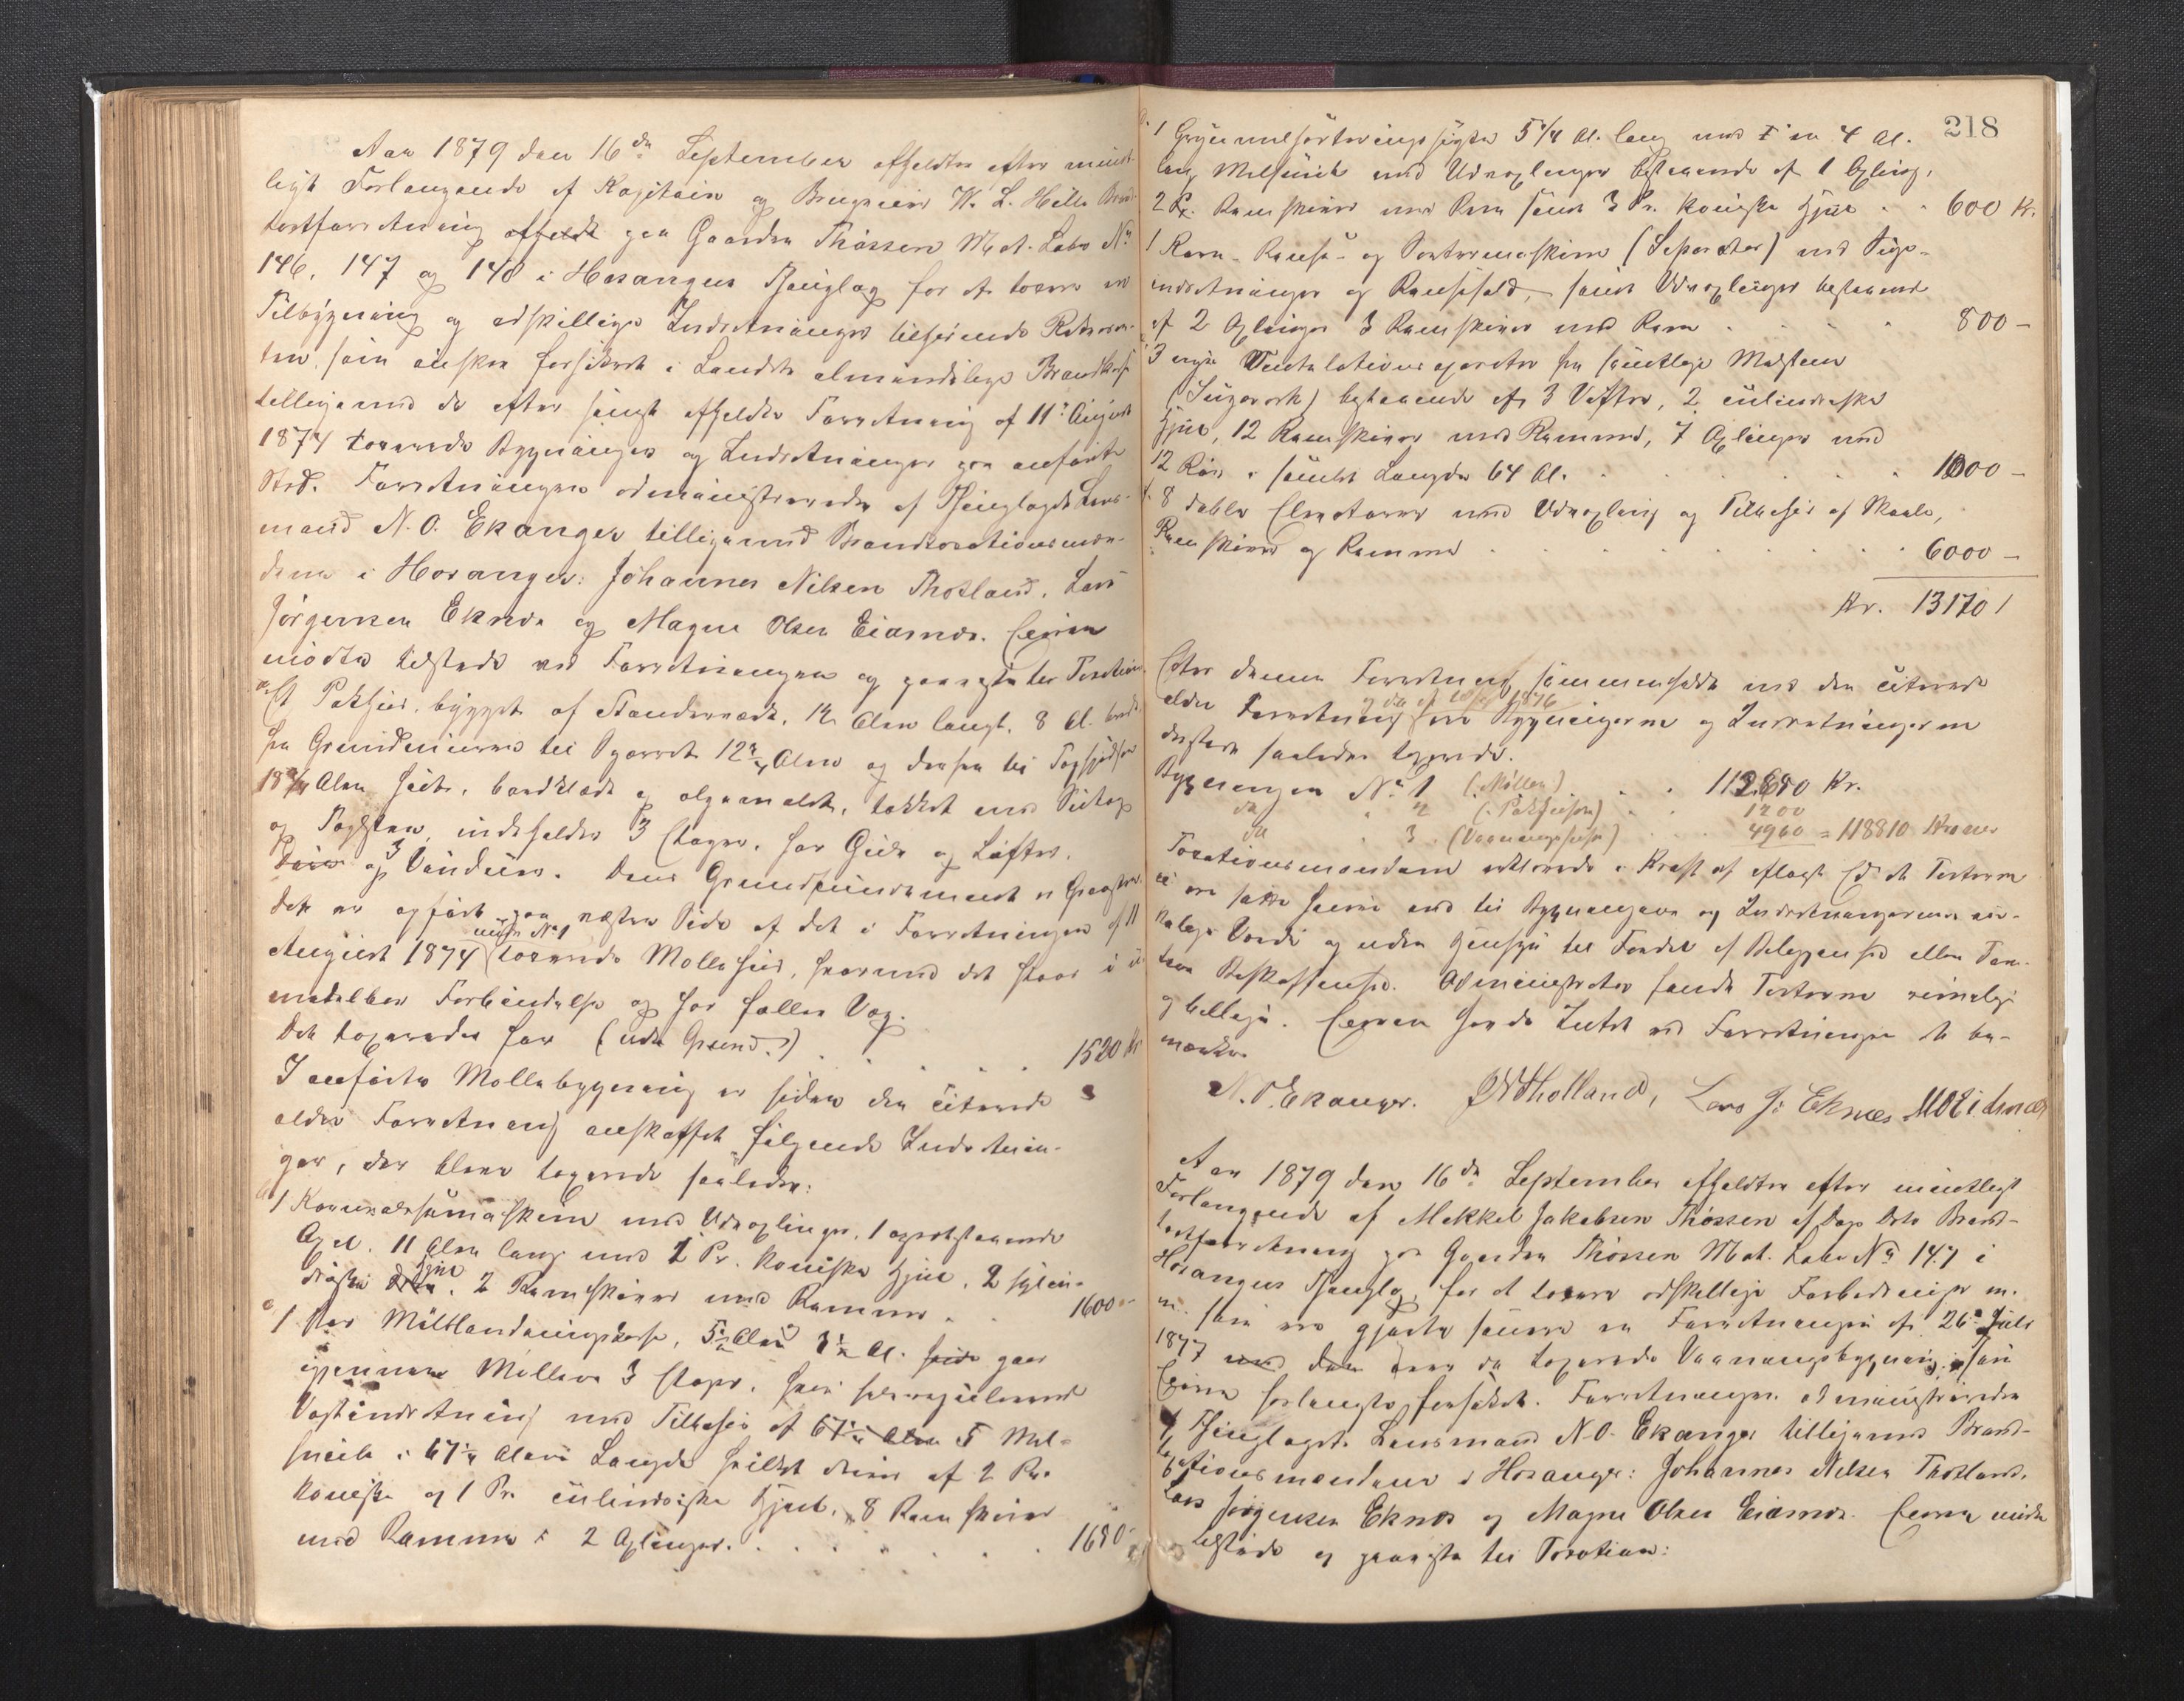 Aar 1879 den 16de September afholdtes efter mündt-
ligt Forlangende af Kapitain og Brugseier W. L. Hille Brand-
taxtforretning afholdt paa Gaarden Thossen Mat. Løbe No
146, 147 og 148 i Hosangers Thinglag for at taxere en
Tilbygning og adskillige Indretninger tilhørende Rekviren-
ten, som ønskes forsikret i Landets almindelige Brandkasse
tilligemed de efter hengst afholdte Forretning af 11te August
1874 taxerede Bygninger og Indretninger paa anførte
Sted. Forretningen administreredes af Thinglagets Lens-
mand N. O. Ekanger tilligemed Brandtaxationsmæn-
dene i Hosanger: Johannes Nilsen Tholland, Lars
Jørgensen Eknes og Magne Olsen Eidsnes. Eieren
mødte tilstede ved Forretningen og paaviste til Taxation
a Et Pakhus, bygget af Standerverk, 12 Alen langt, 8 Al. bredt,
fra Grundmuren til Sparret 12 3/4 Alen og derfra til Tagspidsen
18 3/4 Alen høit, bordklædt og oljemalet, takket med Sutag
og Tagsten, indeholder 3 Etager, har Gulv og Lofter,
Døre og 3 Vinduer. Dens Grundfundament er Graasten.
Det er opført paa næstre Side af det i Forretningen af 11
August 1874 under No 1 taxerede Mollehus, hvormed det staar i ü-
middelbar Forbindelse og har fælles Væg.
Det taxeredes for (uden Grund.) . . . 1520 Kr
I anførte Mollebygning er siden den citerede
ældre Forretning anskaffet følgende Indretnin-
ger, der bleve taxerede saaledes:
b. 1 Kornrensemaskine med Udvexlinger, 1 opretstaaende
Axel, 11 Alen lang med 2 Pr. koniske Hjul, 2 sylin-
driske Hjul, 2 Remskiver med Remmer . . 1600 -
c. 1 stor Miltblandingskasse, 5 1/2 Alen 3 1/2 Al. høide gaar
igjennem Møllens 3 Etager, har selvregulerende
Vægtindretning med Tilbehør af 67 1/2 Alen 5 Mel-
sneile i 67 1/2 Alens Længde hvilket drives af 2 Par
koniske og 1 Pr. cülindriske Hjul, 8 Remskiver
med Remmer & 2 Axlinger. . . . . . 1650 -
218
d. 1 Grynmelsorteringssigte 5 1/4 Al. lang med 1 en 4 Al.
lang Melsneile med Udvexlinger bestaaende af 1 Axling,
2 Pr. Remskiver med Rem samt 3 Pr. koniske Hjul . . 600 Kr.
1 Korn-Rense- og Sortermaskine (Separator) med Sige-
indretninger og Rensesold, samt Udvexlinger bestaaende
af 2 Axlinger 3 Remskiver med Rem . . . . 800 -
3 nye Ventilationsaparater fra samtlige Malstene
(Sugeverk) bestaaende af 3 Vifter, 2 cülindriske
Hjul, 12 Remskiver med Remmer, 7 Axlinger med
12 Rør i samlet Længde 64 Al. . . . . 1000 -
8 doble Elevatorer med Udvexling og Tilbehør af Skaale,
Remskiver og Remmer . . . . . . 6000 -
Kr. 13170 /
Efter denne Forretning sammenholdt med den citerede
ældre Forretning og da af 1876 ere Bygningerne og Indretningerne
derstede saaledes taxerede.
Bygningen No 1 (Møllen) . . . 112,650 Kr.
do " 2 (Pakhuset) . . 1200
do " 3 (Vaaningshuset) . . . 4960 = 118810 Kroner
Taxationsmændene erklærede i Kraft af aflagt Ed at Taxterne
ei ere satte høiere end til Bygningens og Indretningernes vir-
kelige Værdi og uden Hensyn til Fordel af Beliggenhed eller Tom-
tens Beskaffenhed. Administrator fandt Taxterne rimelige
og billige. Eieren havde Intet ved Forretningen at be-
mærke.
N. O. Ekanger. JNTholland, Lars J. Eknes MOEidsnæs
Aar 1879 den 16de September afholdtes efter mündtligt
Forlangende af Mikkel Jakobsen Thossen af Dags Dato Brand-
taxtforretning paa Gaarden Thossen Mat. Løbe No 147 i
Hosangers Thinglag, for at taxere adskillige Forbedringer m.
m. som ere gjorte senere en Forretningen af 26de Juli
1877 med den ved da taxerede Vaaningsbygning, som
Eieren forlangte forsikret. Forretningen administreredes
af Thinglagets Lensmand N. O. Ekanger tilligemed Brand-
taxationsmændene i Hosanger: Johannes Nilsen Tholland,
Lars Jørgensen Eknes og Magne Olsen Eidsnes. Eieren mødte
tilstede og paaviste til Taxation: